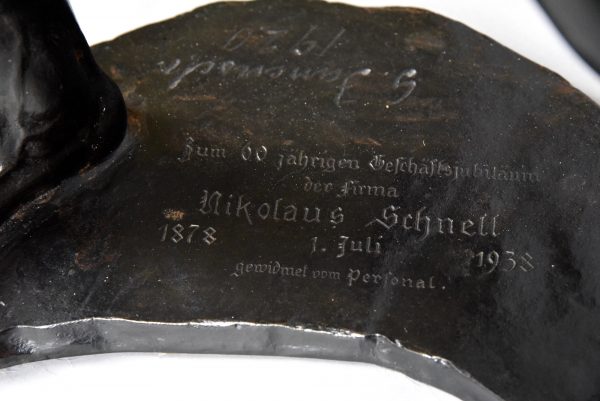 G. Janensch
1920
Zum 60 jährigen Geschäftsjubiläum
der Firma
Nikolaus Schnell
1878 1. Juli 1938
gewidmet vom Personal.